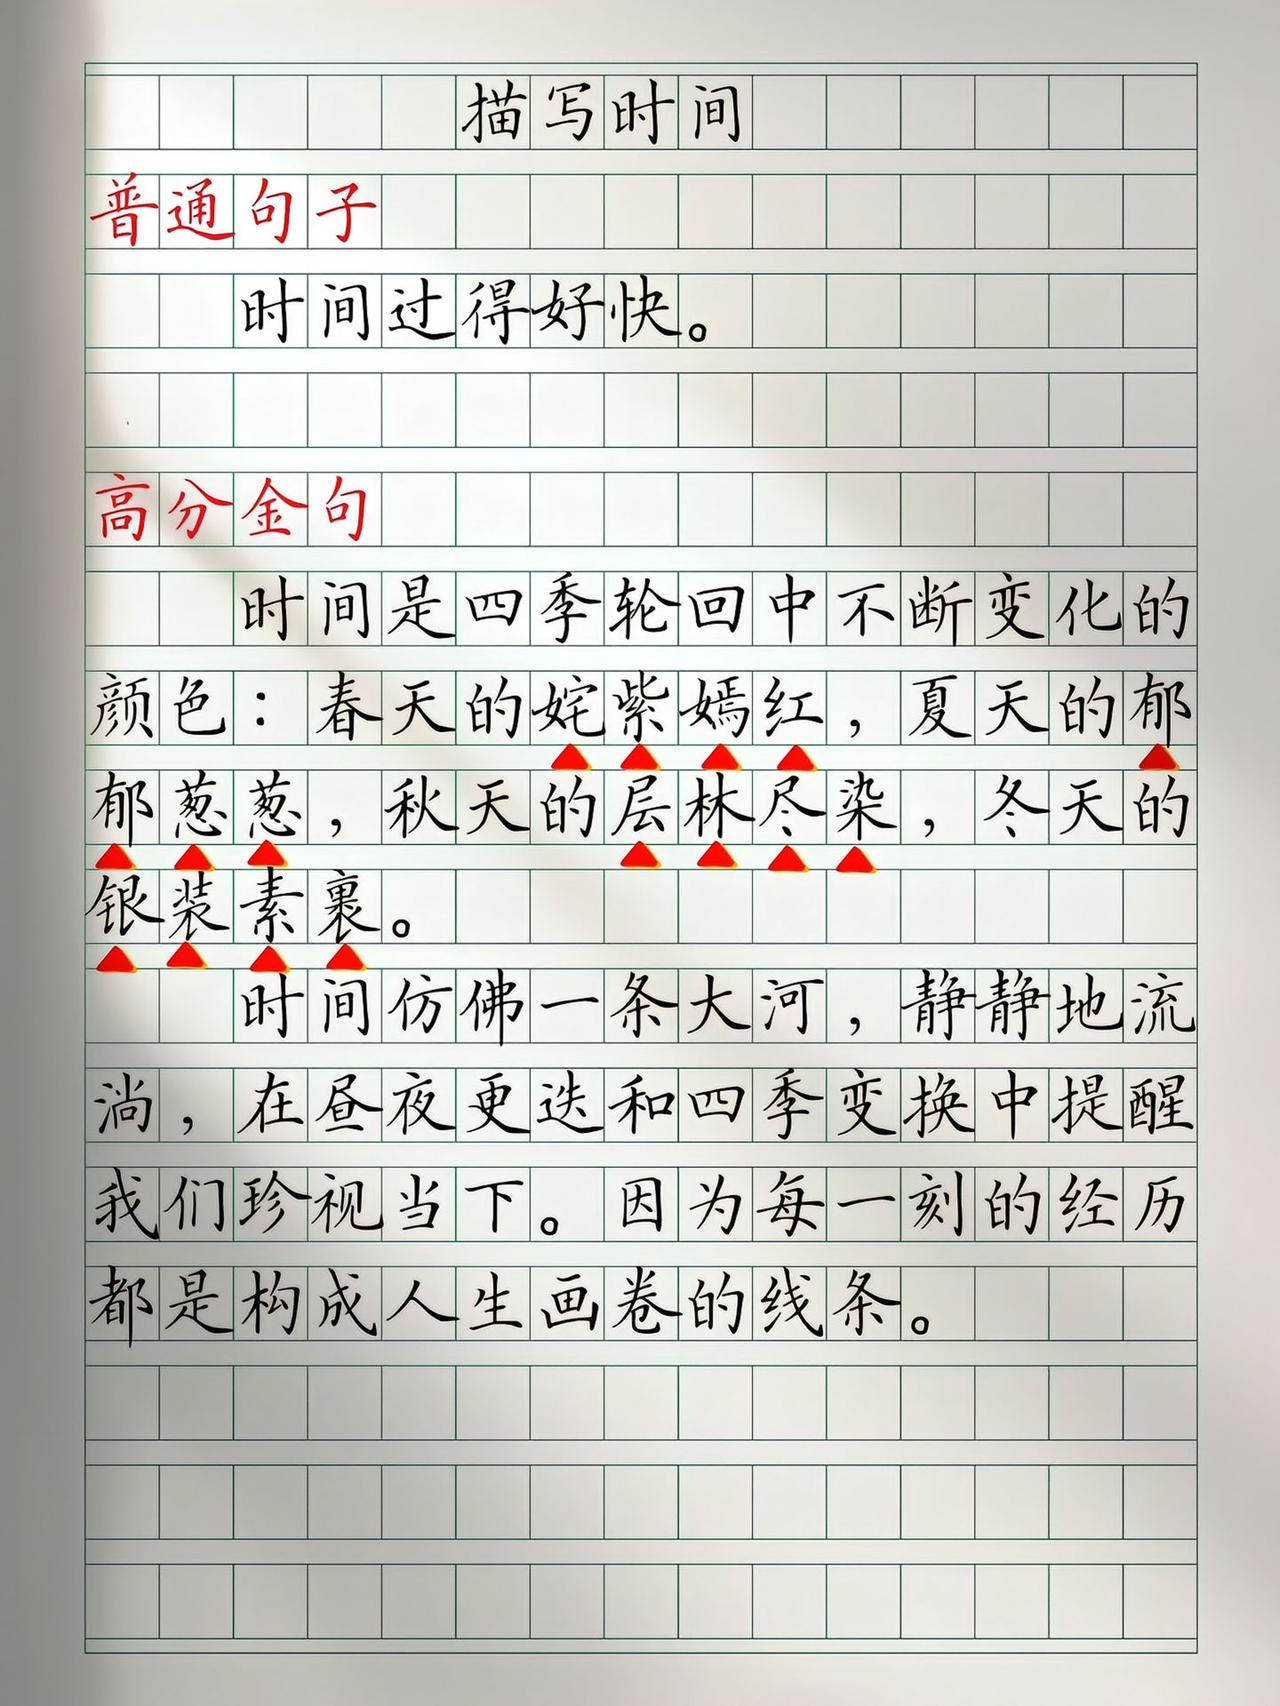 描写时间
普通句子
时间过得好快。
高分金句
时间是四季轮回中不断变化的
颜色：春天的姹紫嫣红，夏天的郁
郁葱葱，秋天的层林尽染，冬天的
银装素裹。
时间仿佛一条大河，静静地流
淌，在昼夜更迭和四季变换中提醒
我们珍视当下。因为每一刻的经历
都是构成人生画卷的线条。